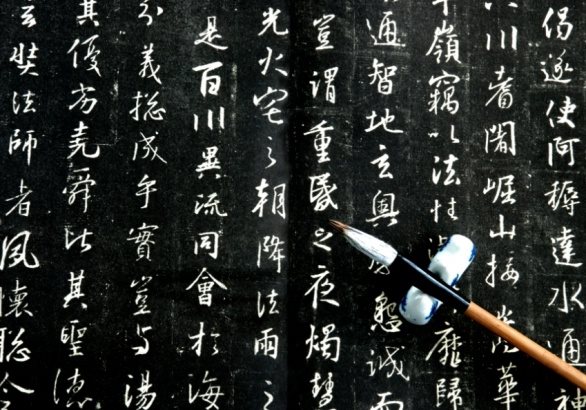 偈遂使阿耨達水通神
川耆闍崛山接嵩華
嶺竊以法性靡歸
通智地玄奧感懇誠而
豈謂重昏之夜燭慧
光火宅之朝降法雨之
是百川異流同會於海
分義總成乎實豈與湯
其優劣堯舜比其聖德
玄奘法師者夙懷聰令